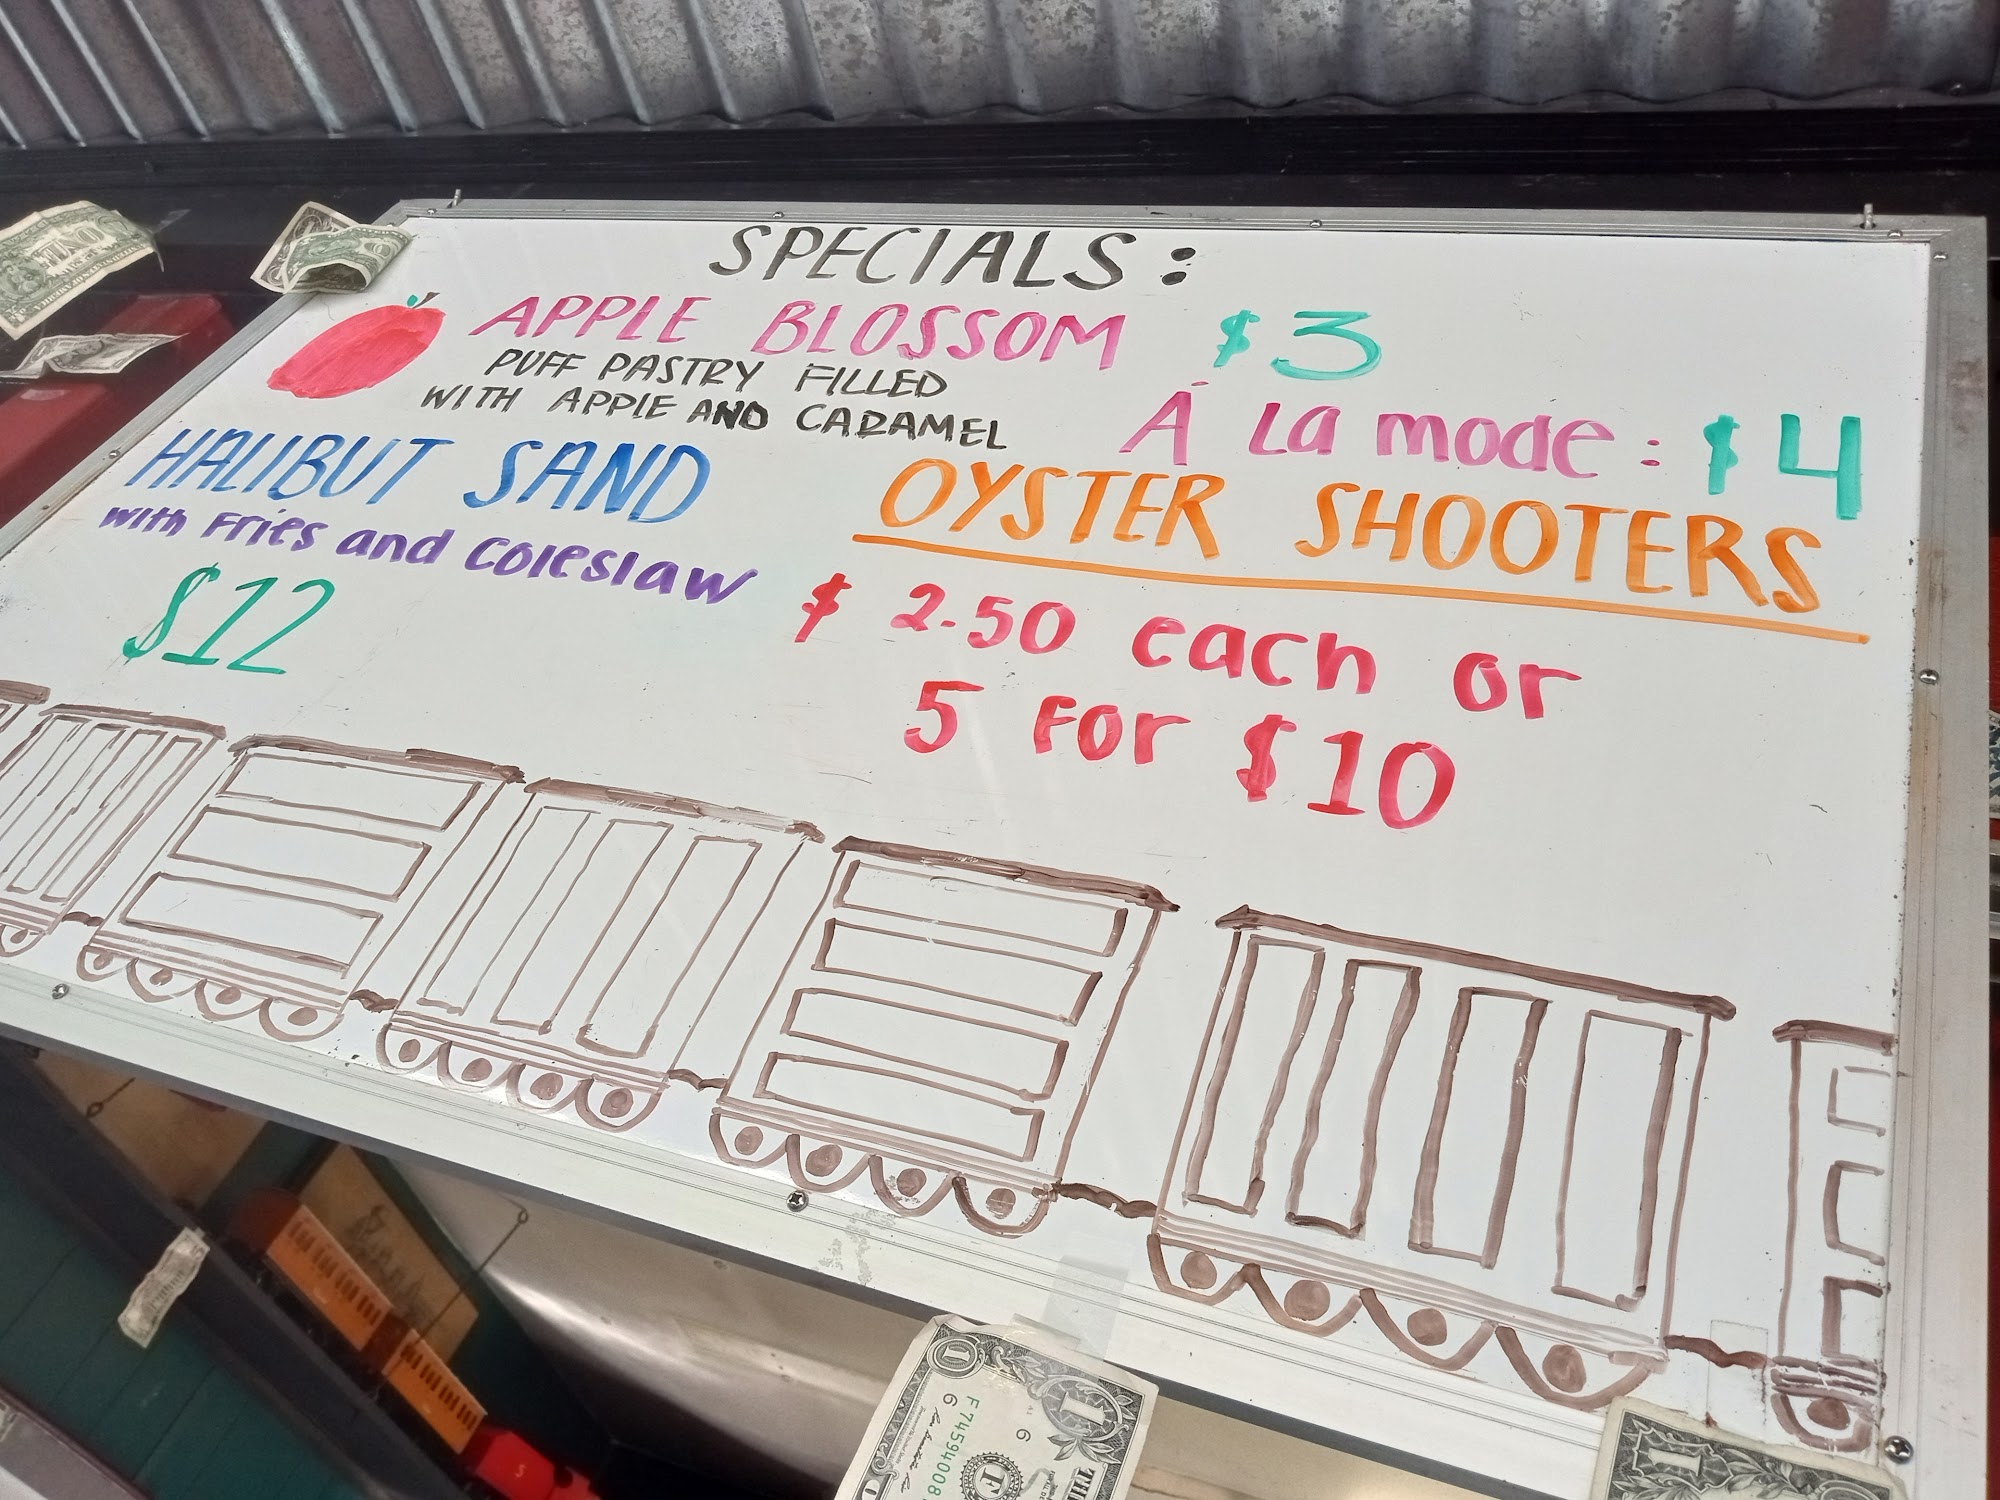 SPECIALS:
APPLE BLOSSOM $3
PUFF PASTRY FILLED
WITH APPLE AND CARAMEL
À La mode: $4
HALIBUT SAND
with Fries and Coleslaw
$12
OYSTER SHOOTERS
$2.50 each or
5 For $10
ONE
1
6
F74594008
6
1